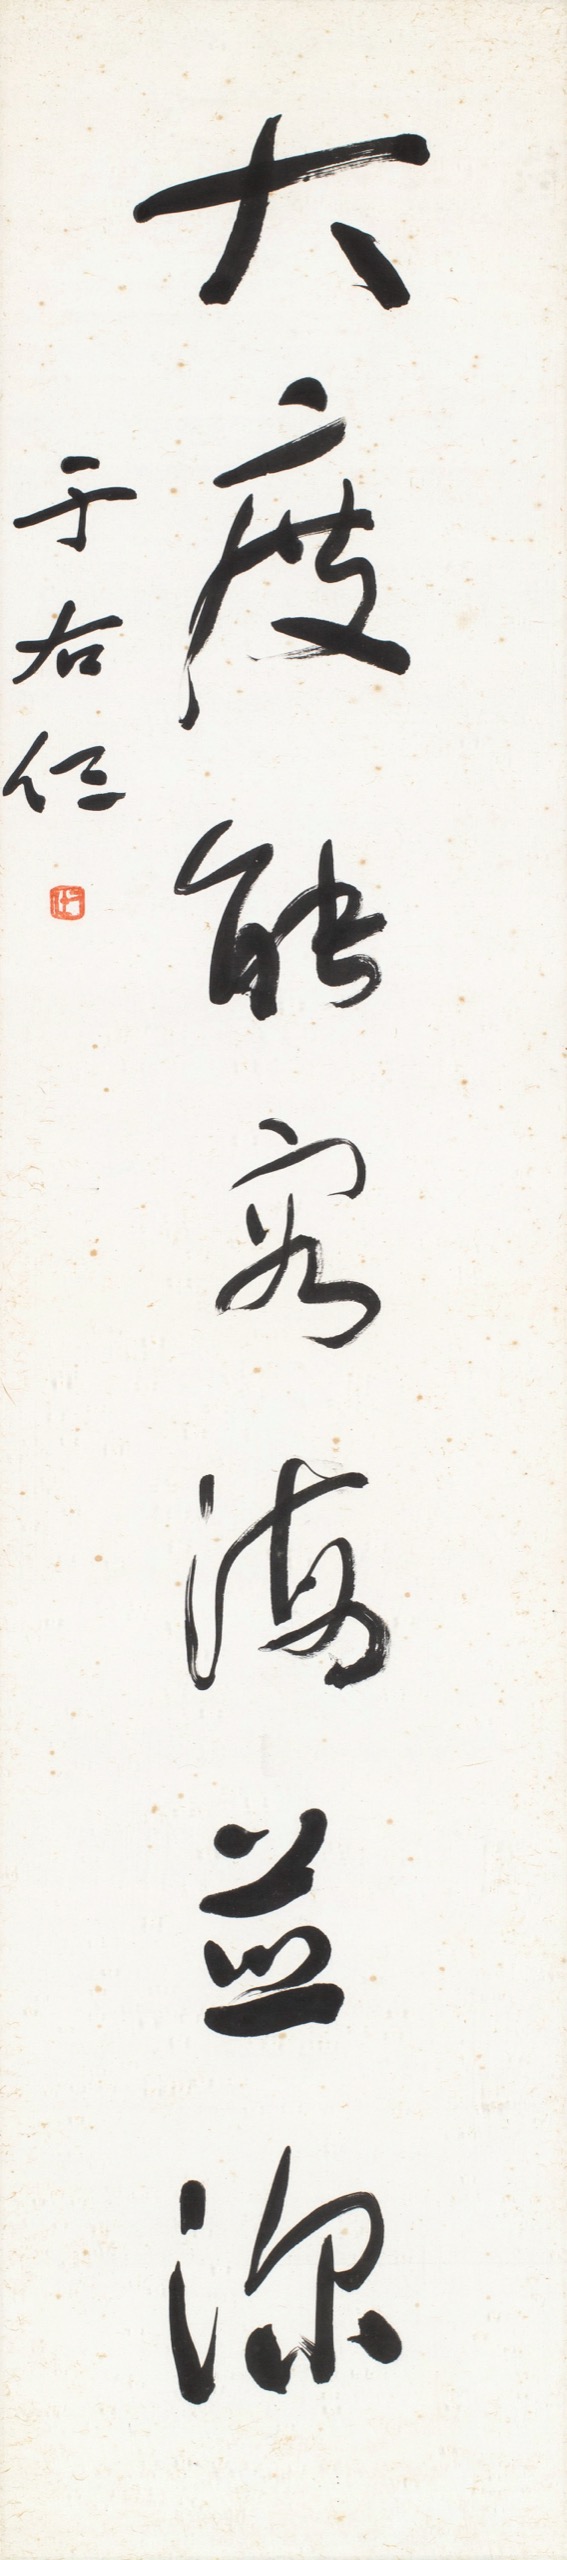 大度能容海並深
于右任